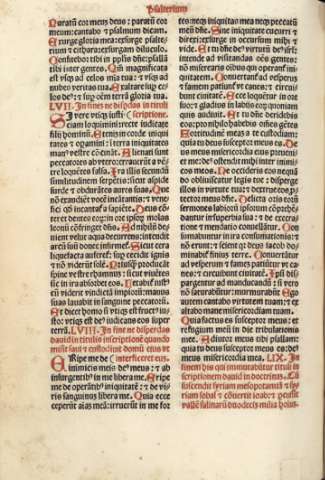 Psalterium
Paratū cor meū deus: paratū cor
meum: cantabo ⁊ psalmum dicam.
Exurge gloria mea: exurge psalte-
rium ⁊ cithara: exurgam diluculo.
Confitebor tibi in pplis dñe: ⁊ psalmū
tibi iter gentes. Qm̄ magnificata
est vsq; ad celos mīa tua: ⁊ vsq; ad
nubes veritas tua. Exaltare sup ce-
los deꝰ: ⁊ sup oēm terrā gloria tua.
LVII. In fines ne disꝑdas in tituli
Si vere vtiq; iusti- scriptione.
ciam loquimini: recte iudicate
filij hominū. Etenim in corde iniqui
tates operamini: in terra iniquitates
manꝰ vestre cōcināt. Alienati sunt
peccatores ab vtero: errauerūt a vē-
tre: locuti sūt falsa. Furor illis secundū
similitudinem serpētis: sicut aspidis
surde ⁊ obturātis aures suas. Que
nō exaudiet vocē incātantis: ⁊ vene-
fici incantātis sapiēter. Deus cōte-
ret dentes eoꝝ in ore ipsoꝝ: molas
leonū cōfringet dñs. Ad nihilū de-
uenient velut aqua decurrens: intendit
arcū suū donec infirment̄. Sicut cera
que fluit auferent̄: sup cecidit ignis
⁊ nō viderūt solē. Priusq̄ intelligerēt
spine vestre rhamnū: sicut viuētes
sic in ira absorbet eos. Letabit̄ iustꝰ
cū viderit vindictā: manus
suas lauabit in sanguine peccatoris.
Et dicet homo si vtiq; est fructꝰ iu-
sto: vtiq; est deꝰ iudicans eos in
terra. LVIII. In fine ne disperdas
dauid in tituli inscriptionē quando
misit saul ⁊ custodiuit domū eius vt
Eripe me de interficeret eum.
inimicis meis deꝰ meus: ⁊ ab
insurgentibꝰ in me libera me. Eripe
me de operātibꝰ iniquitatē: ⁊ de vi-
ris sanguinum libera me. Quia ecce
ceperūt aīam meā: irruerūt in me for
tes: neq; iniquitas mea neq; peccatū
meū dñe. Sine iniquitate cucurri ⁊
direxi: exurge in occursum mihi ⁊
vide. Et tu dñe deꝰ virtutū deꝰ isrł:
intende ad visitandas oēs gentes:
nō miserearis oībus qui operant̄ iniqui
tatem. Conuertent̄ ad vesperam:
⁊ famem patient̄ vt canes: ⁊ circui-
bunt ciuitatē. Ecce loquent̄ in ore
suo: ⁊ gladius in labijs eoꝝ: quoniam
quis audiuit. Et tu dñe deridebis
eos: pro nihilo habebis omēs gētes.
Fortitudinē meā ad te custodiam:
quia tu deus susceptor meus es. De-
us meus misericordia eius preueni-
et me: deꝰ ostendet mihi sup inimicos
meos: ne occidas eos nequā-
do obliuiscant̄ populi mei. Disper-
ge illos in virtute tua: ⁊ depone eos pro-
tector meus dñe. Delicta oris eorū
sermonē labioꝝ ipsorum: ⁊ cōprehē-
dant̄ in supbia sua: ⁊ de execra-
tione ⁊ mendacio. Con
summabunt̄ in ira cōsummationis: ⁊
nō erunt: ⁊ scient qꝛ deus iacob do-
minabit̄ finiū terre. Conuertēt̄
ad vesperam: ⁊ famē patiēt̄ vt ca-
nes: ⁊ circuibunt ciuitatē. Ipsi di-
spergent̄ ad manducandū: si vero
nō saturabūt̄: ⁊ murmurabūt. Ego
autem cantabo virtutem tuam: ⁊ ex-
altabo mane misericordiam tuam.
Quia factus es susceptor meus: et
refugium meū in die tribulationis
mee. Adiutor meus tibi psallam:
quia tu deus susceptor meus es: deꝰ
meus misericordia mea. LIX. In
finem his qui immutabunt̄ tituli in-
scriptionem dauid in doctrinā. Cū
succendit syriam mesopotamiā ⁊ sy-
riam sobal ⁊ cōuertit ioab: ⁊ percussit
vallē salinarū duodecim milia